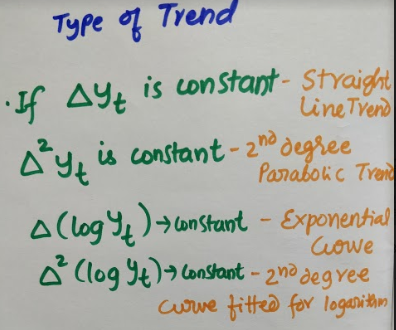 Type of Trend
. If Δyt is constant - Straight
Line Trend
Δ²yt is constant - 2nd degree
Parabolic Trend
Δ(log yt) → constant - Exponential
Curve
Δ² (log yt) → constant - 2nd degree
curve fitted for logarithm